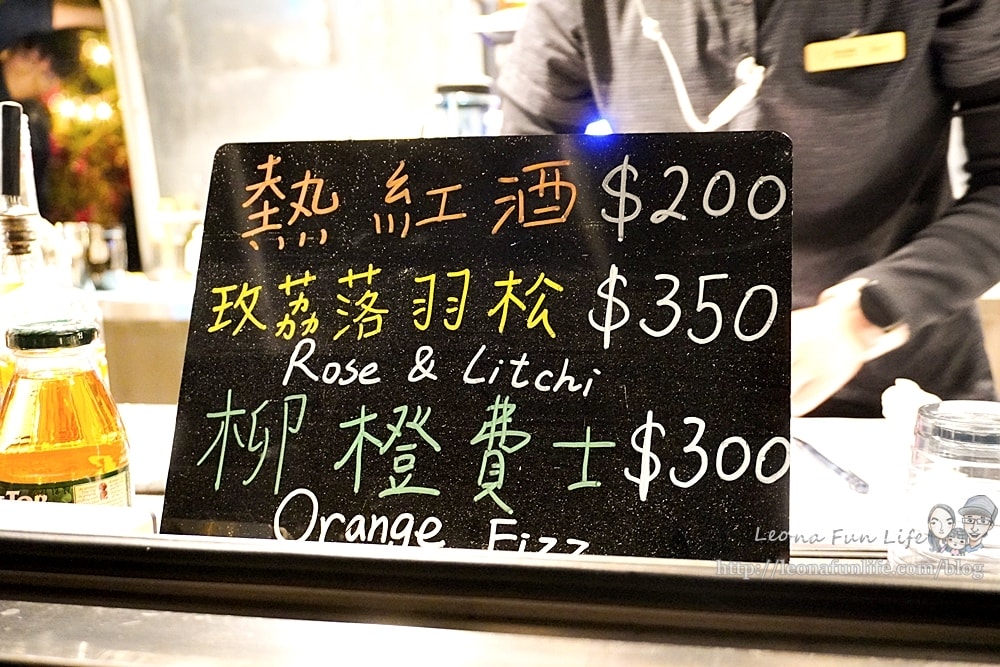 熱紅酒 $200
玫荔落羽松 $350
Rose & Litchi
柳橙費士 $300
Orange Fizz
Leona Fun Life
http://leonafunlife.com/blog